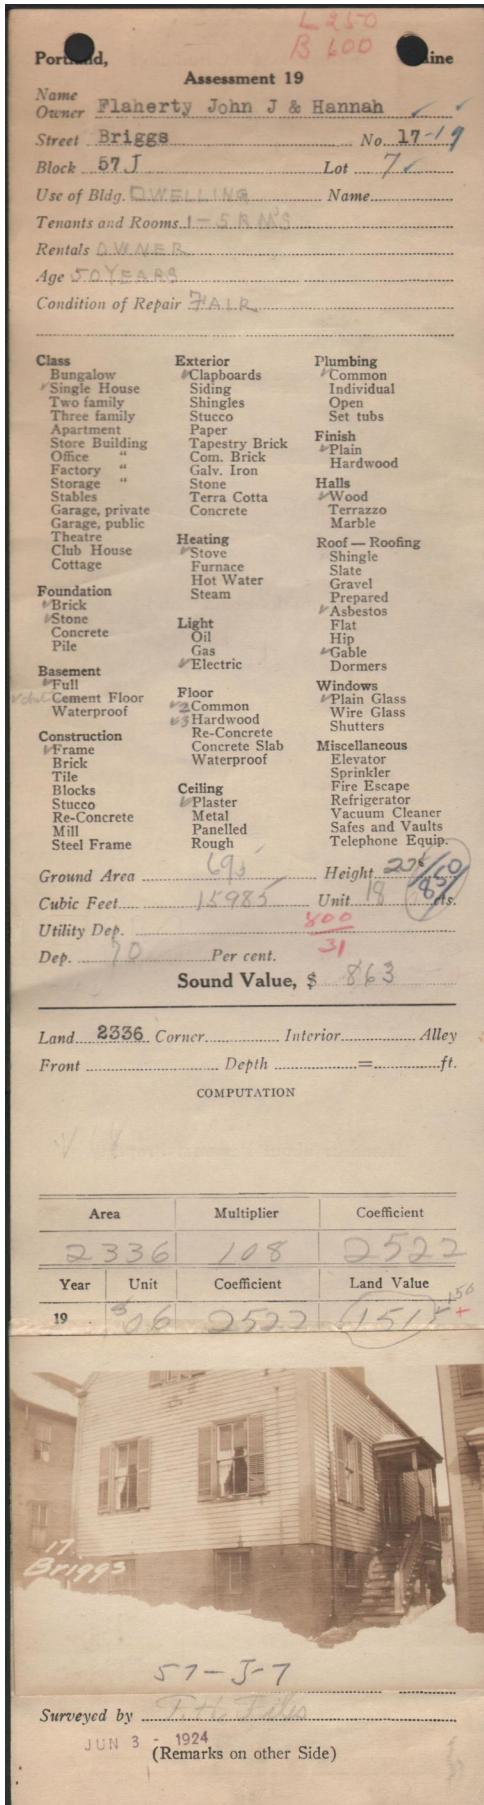 L 250
B 600
Portland, Maine
Assessment 19
Name
Owner Flaherty John J & Hannah
Street Briggs No. 17-19
Block 57J Lot 7
Use of Bldg. DWELLING Name
Tenants and Rooms 1-5 RMS
Rentals OWNER
Age 50 YEARS
Condition of Repair FAIR
Class
Bungalow
Single House
Two family
Three family
Apartment
Store Building
Office "
Factory "
Storage "
Stables
Garage, private
Garage, public
Theatre
Club House
Cottage
Foundation
Brick
Stone
Concrete
Pile
Basement
Full
Cement Floor
Waterproof
Construction
Frame
Brick
Tile
Blocks
Stucco
Re-Concrete
Mill
Steel Frame
Exterior
Clapboards
Siding
Shingles
Stucco
Paper
Tapestry Brick
Com. Brick
Galv. Iron
Stone
Terra Cotta
Concrete
Heating
Stove
Furnace
Hot Water
Steam
Light
Oil
Gas
Electric
Floor
2 Common
3 Hardwood
Re-Concrete
Concrete Slab
Waterproof
Ceiling
Plaster
Metal
Panelled
Rough
Plumbing
Common
Individual
Open
Set tubs
Finish
Plain
Hardwood
Halls
Wood
Terrazzo
Marble
Roof — Roofing
Shingle
Slate
Gravel
Prepared
Asbestos
Flat
Hip
Gable
Dormers
Windows
Plain Glass
Wire Glass
Shutters
Miscellaneous
Elevator
Sprinkler
Fire Escape
Refrigerator
Vacuum Cleaner
Safes and Vaults
Telephone Equip.
Ground Area 695 Height
Cubic Feet 15985 Unit 18 cts.
850
Utility Dep. 800
31
Dep. 70 Per cent.
Sound Value, $ 863
Land 2336 Corner Interior Alley
Front Depth = ft.
COMPUTATION
Area Multiplier Coefficient
2336 108 2522
Year Unit Coefficient Land Value
19 $06 2522 151
150
+
17
Briggs
57-J-7
Surveyed by F. H. Files
JUN 3 - 1924
(Remarks on other Side)